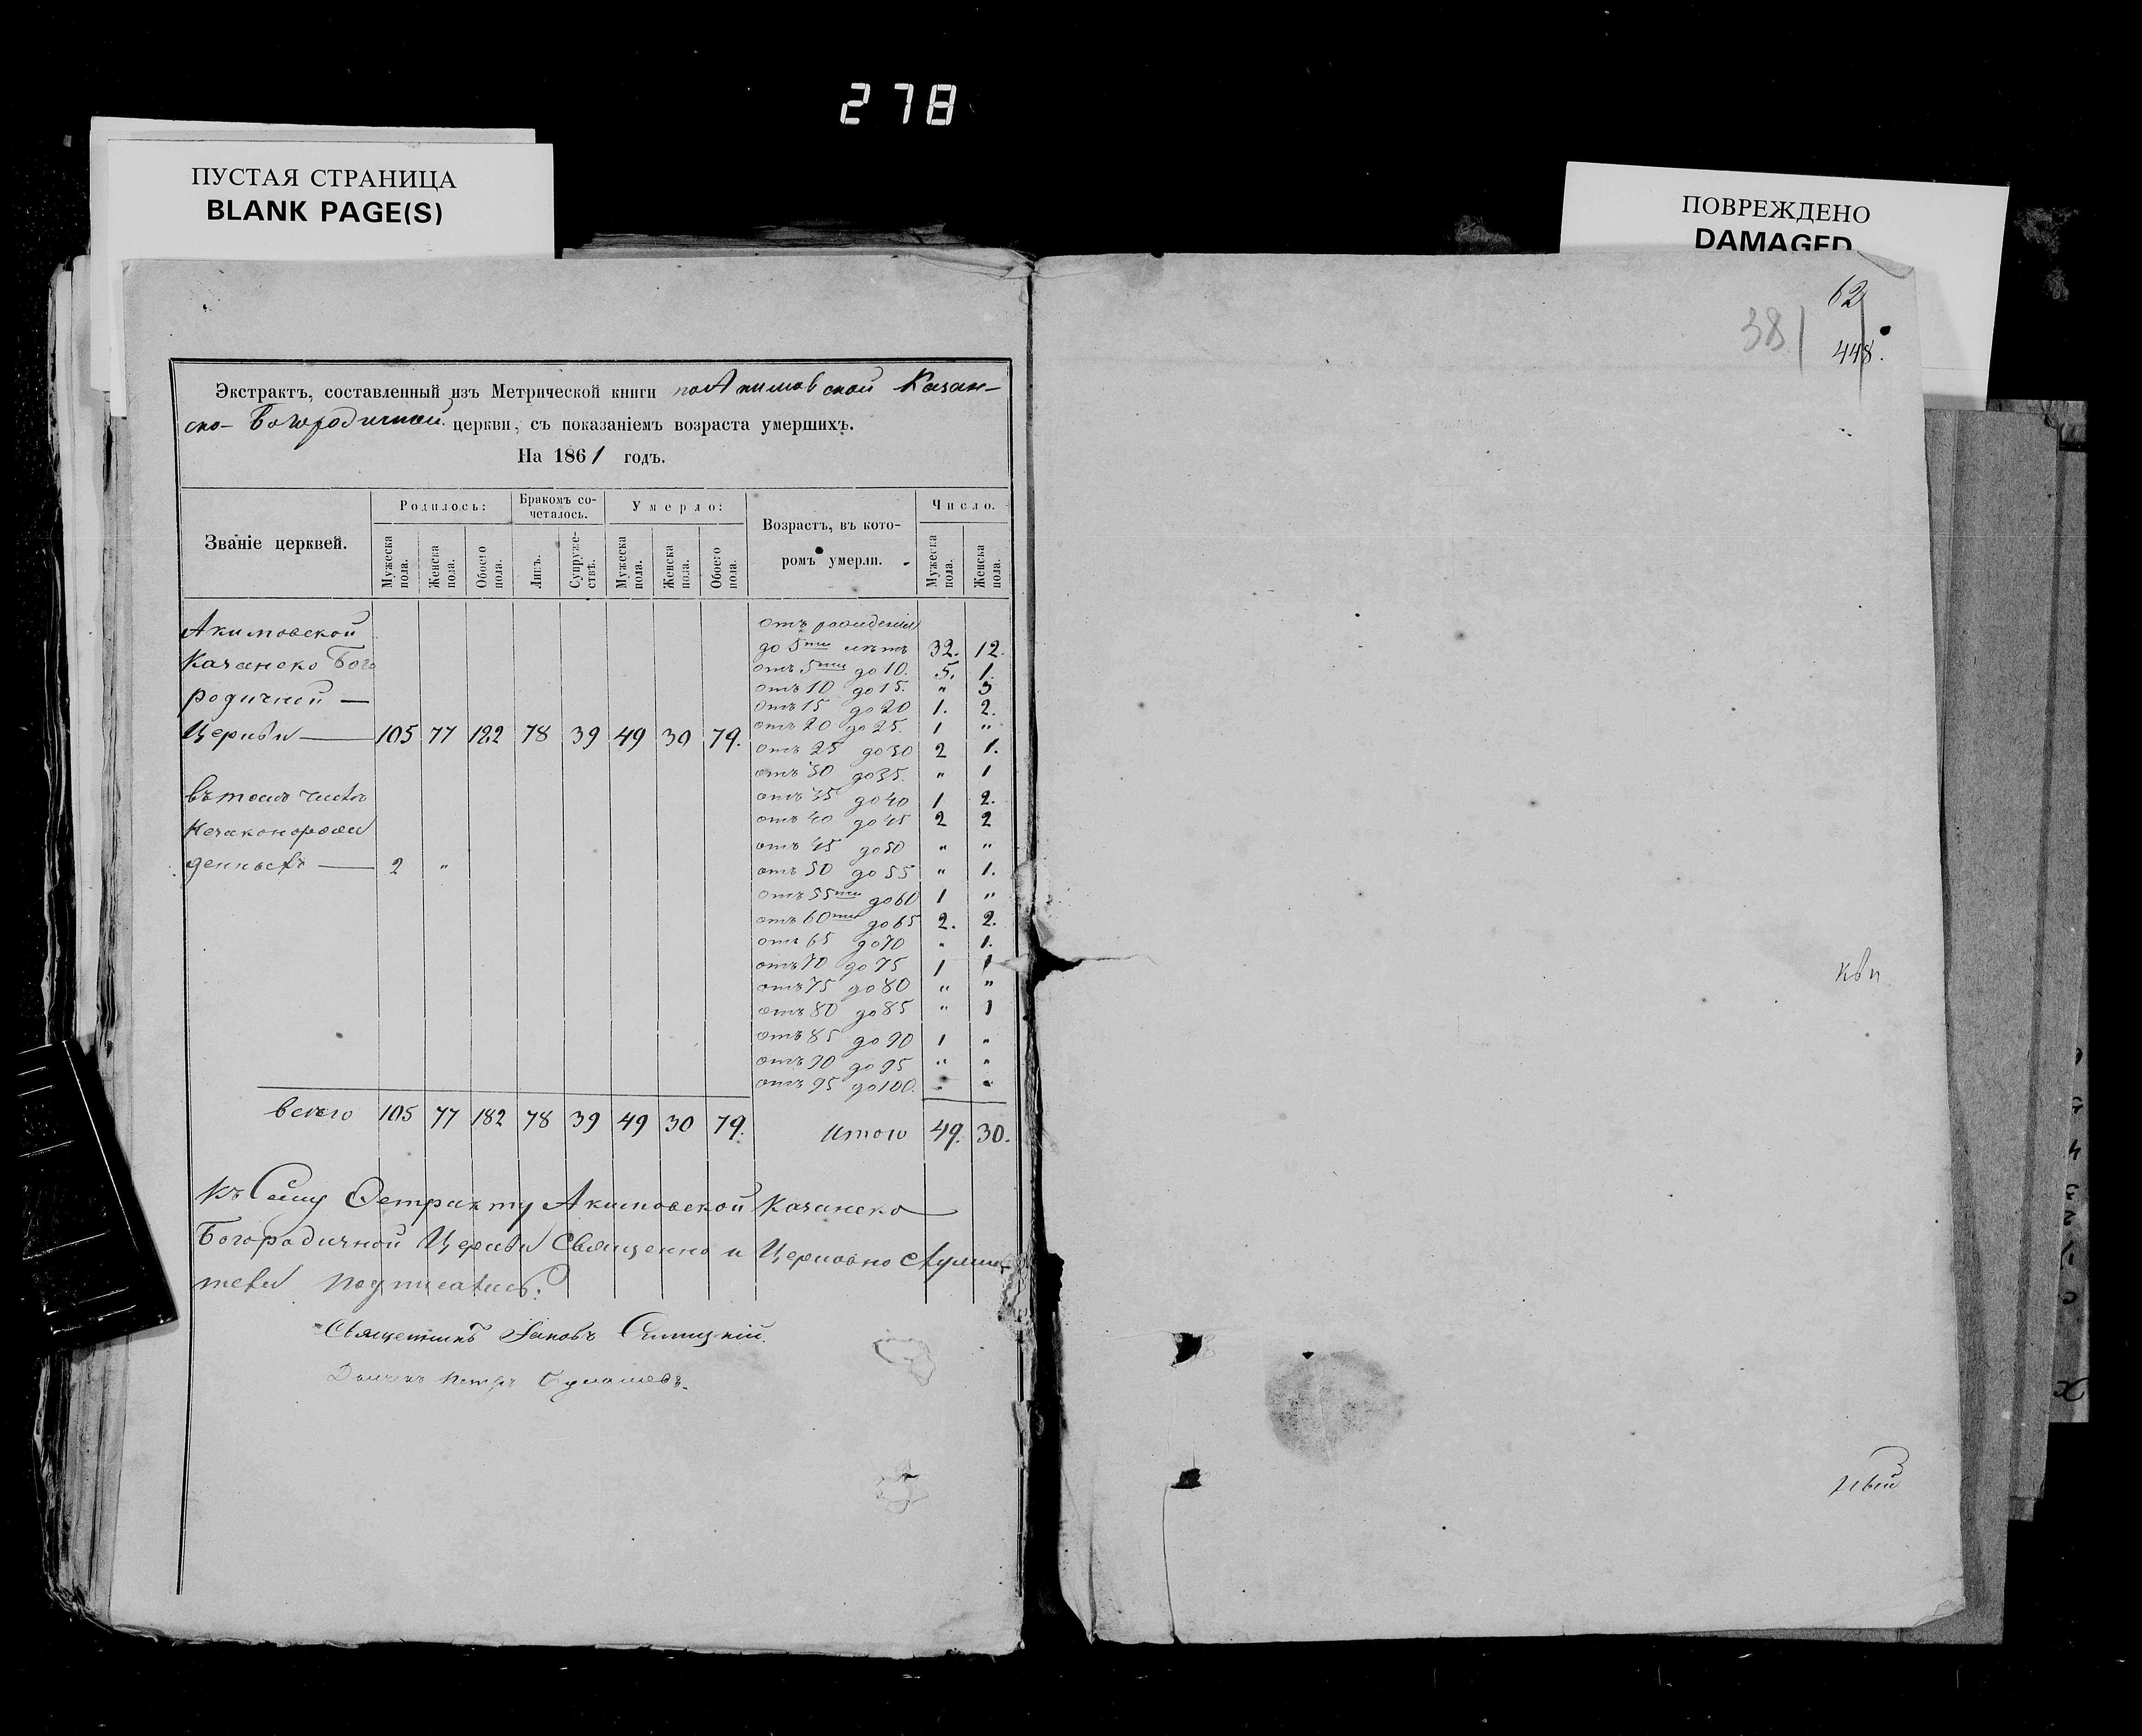 278
ПУСТАЯ СТРАНИЦА
BLANK PAGE(S)
ПОВРЕЖДЕНО
DAMAGED
62
38
448.
Экстрактъ, составленный изъ Метрической книги по Акимовской Казан-
ско-Богородичной церкви, съ показаніемъ возраста умершихъ.
На 1861 годъ.
Званіе церквей.
Родилось:
Бракомъ со-
четалось.
Умерло:
Возрастъ, въ кото-
ромъ умерли.
Число.
Мужеска пола.
Женска пола.
Обоего пола.
Лицъ.
Супруже-
ствъ.
Мужеска пола.
Женска пола.
Обоего пола.
Мужеска пола.
Женска пола.
Акимовской
Казанско Бого
родичной —
Церкви — 105 77 182 78 39 49 30 79.
въ томъ числѣ
Незаконорож
денныхъ — 2 "
отъ рожденія
до 5ти лѣтъ 32. 12.
отъ 5ти до 10. 5. 1.
отъ 10 до 15. " 3
отъ 15 до 20 1. 2.
отъ 20 до 25. 1 "
отъ 25 до 30 2 1.
отъ 30 до 35. " 1
отъ 35 до 40 1 2.
отъ 40 до 45 2 2
отъ 45 до 50 " "
отъ 50 до 55 " 1.
отъ 55ти до 60 1 "
отъ 60ти до 65 2. 2.
отъ 65 до 70 " 1.
отъ 70 до 75 1 1
отъ 75 до 80 " "
отъ 80 до 85 " 1
отъ 85 до 90 1 "
отъ 90 до 95 " "
отъ 95 до 100. " "
всего 105 77 182 78 39 49 30 79.
Итого 49. 30.
Къ Сему Экстракту Акимовской Казанско
Богородичной Церкви Священно и Церковно служи
тели подписались:
Священникъ Іаковъ
Дьячекъ Петръ